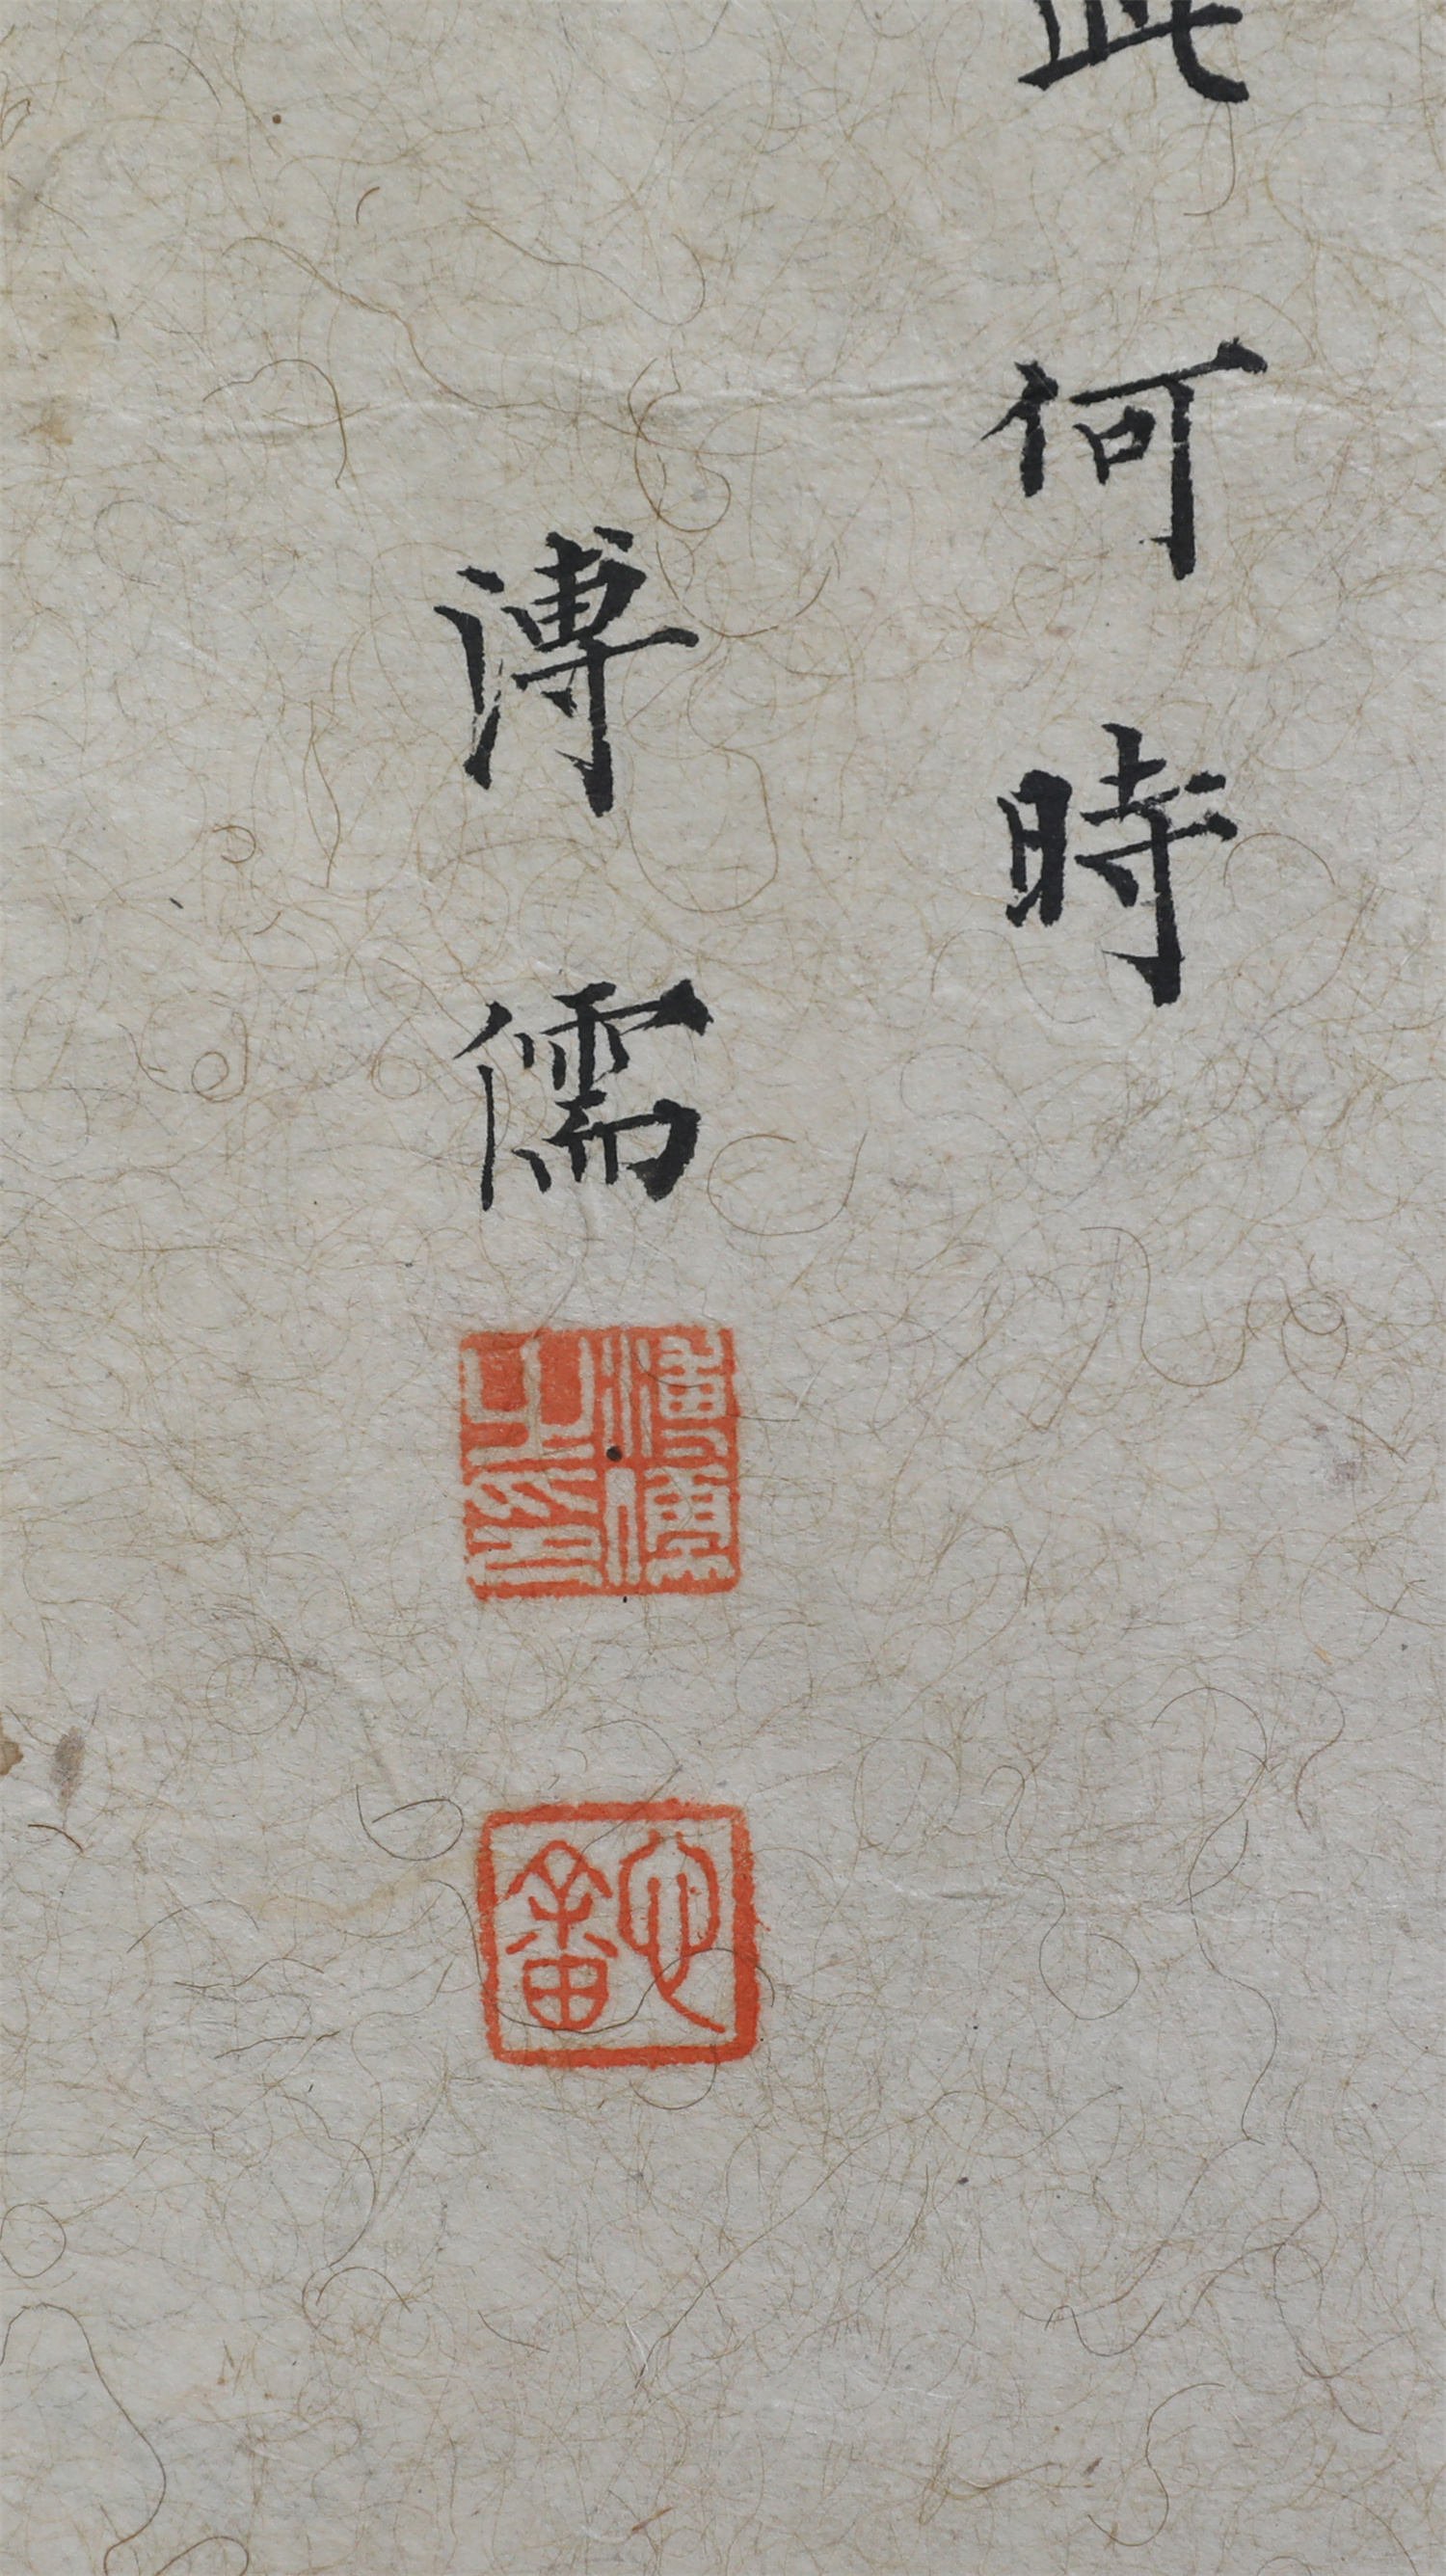 此何時
溥儒
溥儒之印
心畬